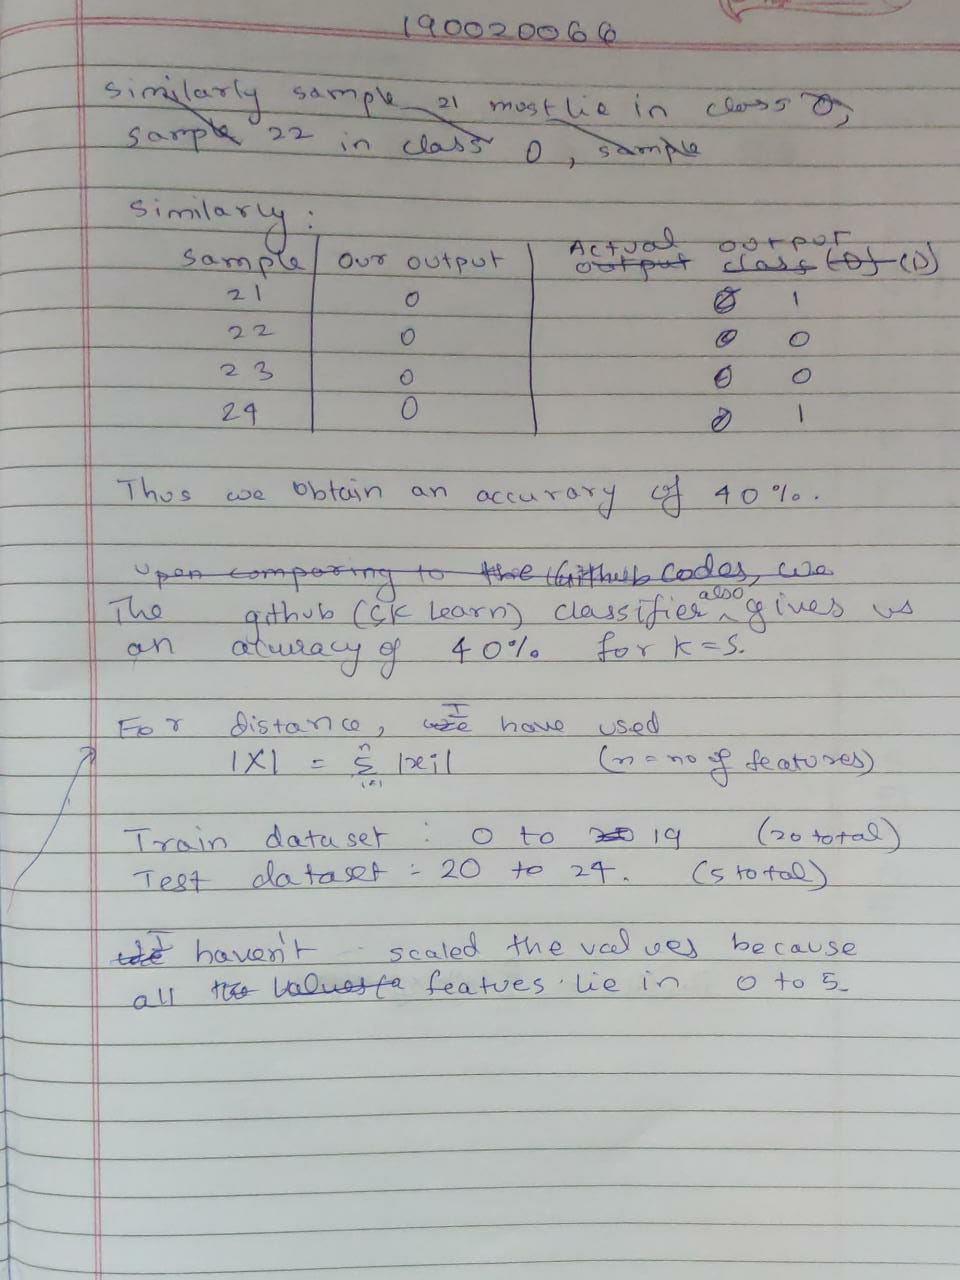 190020066
Similarly sample 21 most lie in class 0,
sample 22 in class 0, sample
Similarly:
Sample Our output Actual output
output class (0) (D)
21 0 0 1
22 0 0 0
23 0 0 0
24 0 0 1
Thus we obtain an accurary of 40%.
Upon comparing to the Github Codes, we
The github (Sk Learn) classifier also gives us
an accuracy of 40% for k=5.
For distance, we I have used
|X| = Σ |xi| (n = no of features)
n
i=1
Train dataset : 0 to 20 19 (20 total)
Test dataset = 20 to 24. (5 total)
we I haven't scaled the values because
all the values featues lie in 0 to 5.